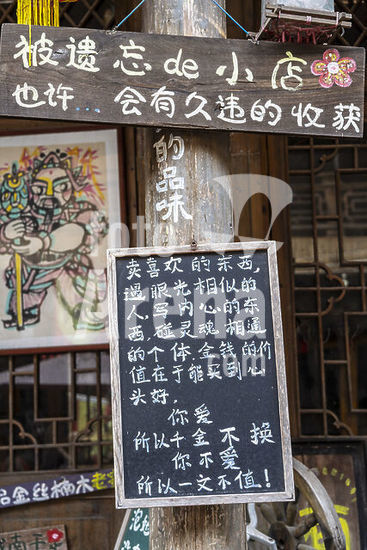 被遗忘de小店
也许...会有久违的收获
的品味
卖喜欢的东西,
遇眼光相似的
人.写内心的东
西,碰灵魂相通
的个体.金钱的价
值在于能买到心
头好.
你爱
所以千金不换
你不爱
所以一文不值!
品金丝楠木老